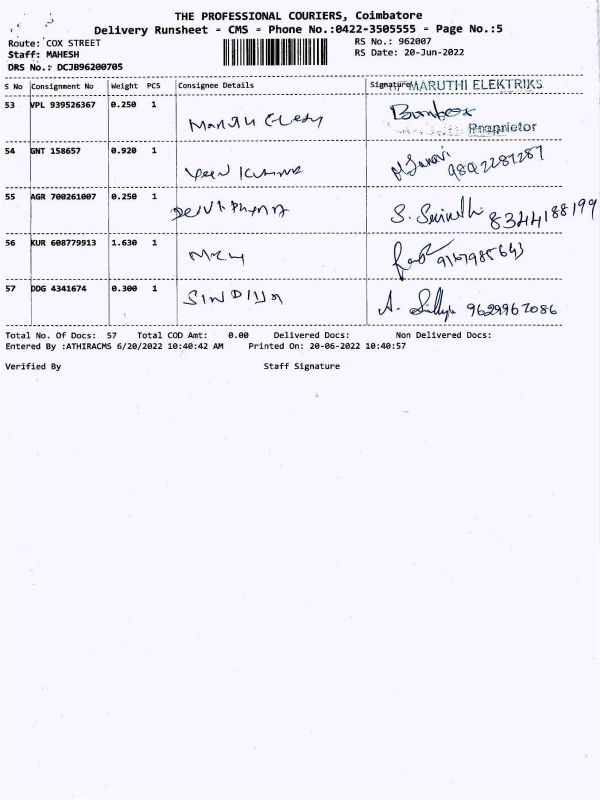 THE PROFESSIONAL COURIERS, Coimbatore
Delivery Runsheet - CMS - Phone No.:0422-3505555 - Page No.:5
Route: COX STREET
RS No.: 962007
Staff: MAHESH
RS Date: 20-Jun-2022
DRS No.: DCJB96200705
S No Consignment No Weight PCS Consignee Details Signature MARUTHI ELEKTRIKS
53 VPL 939526367 0.250 1
Proprietor
54 GNT 158657 0.920 1 9892287287
55 AGR 700261007 0.250 1 S. 8344188199
56 KUR 608779913 1.630 1 9167985643
57 DDG 4341674 0.300 1 SINDIYA A. 9629967086
Total No. Of Docs: 57 Total COD Amt: 0.00 Delivered Docs: Non Delivered Docs:
Entered By :ATHIRACMS 6/20/2022 10:40:42 AM Printed On: 20-06-2022 10:40:57
Verified By Staff Signature